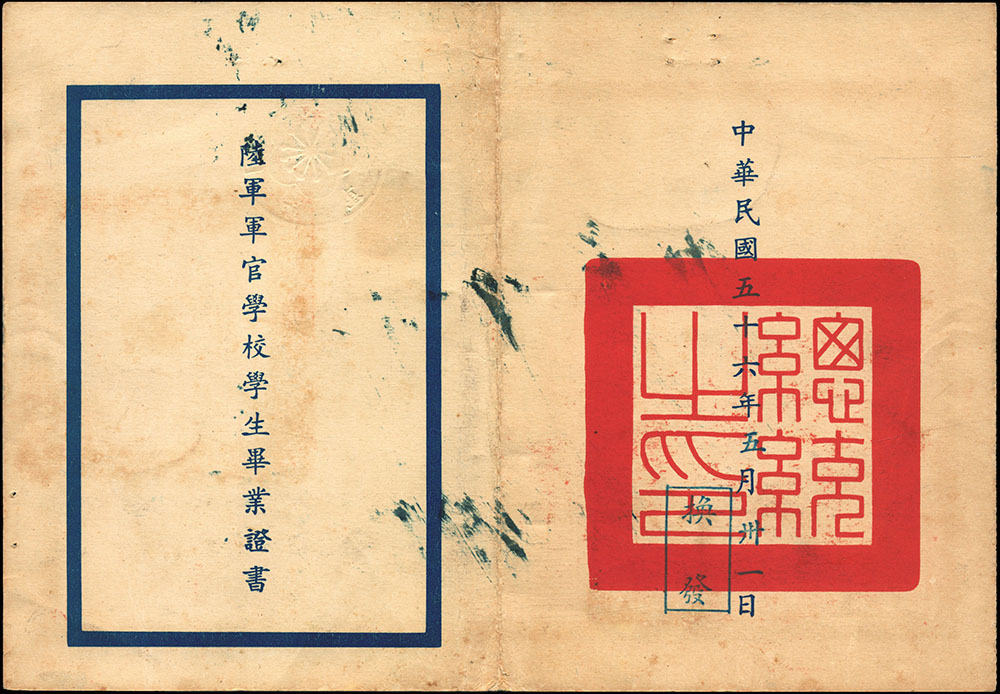 總統之印
中華民國五十六年五月卅一日
換發
陸軍軍官學校學生畢業證書